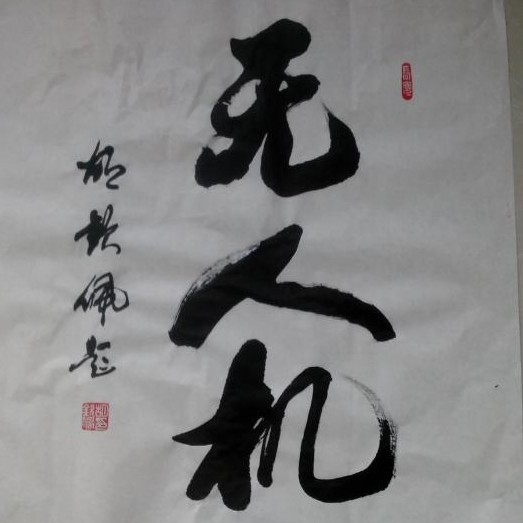 无人机
胡钦佩题